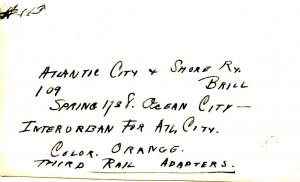 #113
ATLANTIC CITY & SHORE RY.
109 BRILL
SPRING 1928. OCEAN CITY —
INTERURBAN FOR ATL CITY.
COLOR. ORANGE.
THIRD RAIL ADAPTERS.